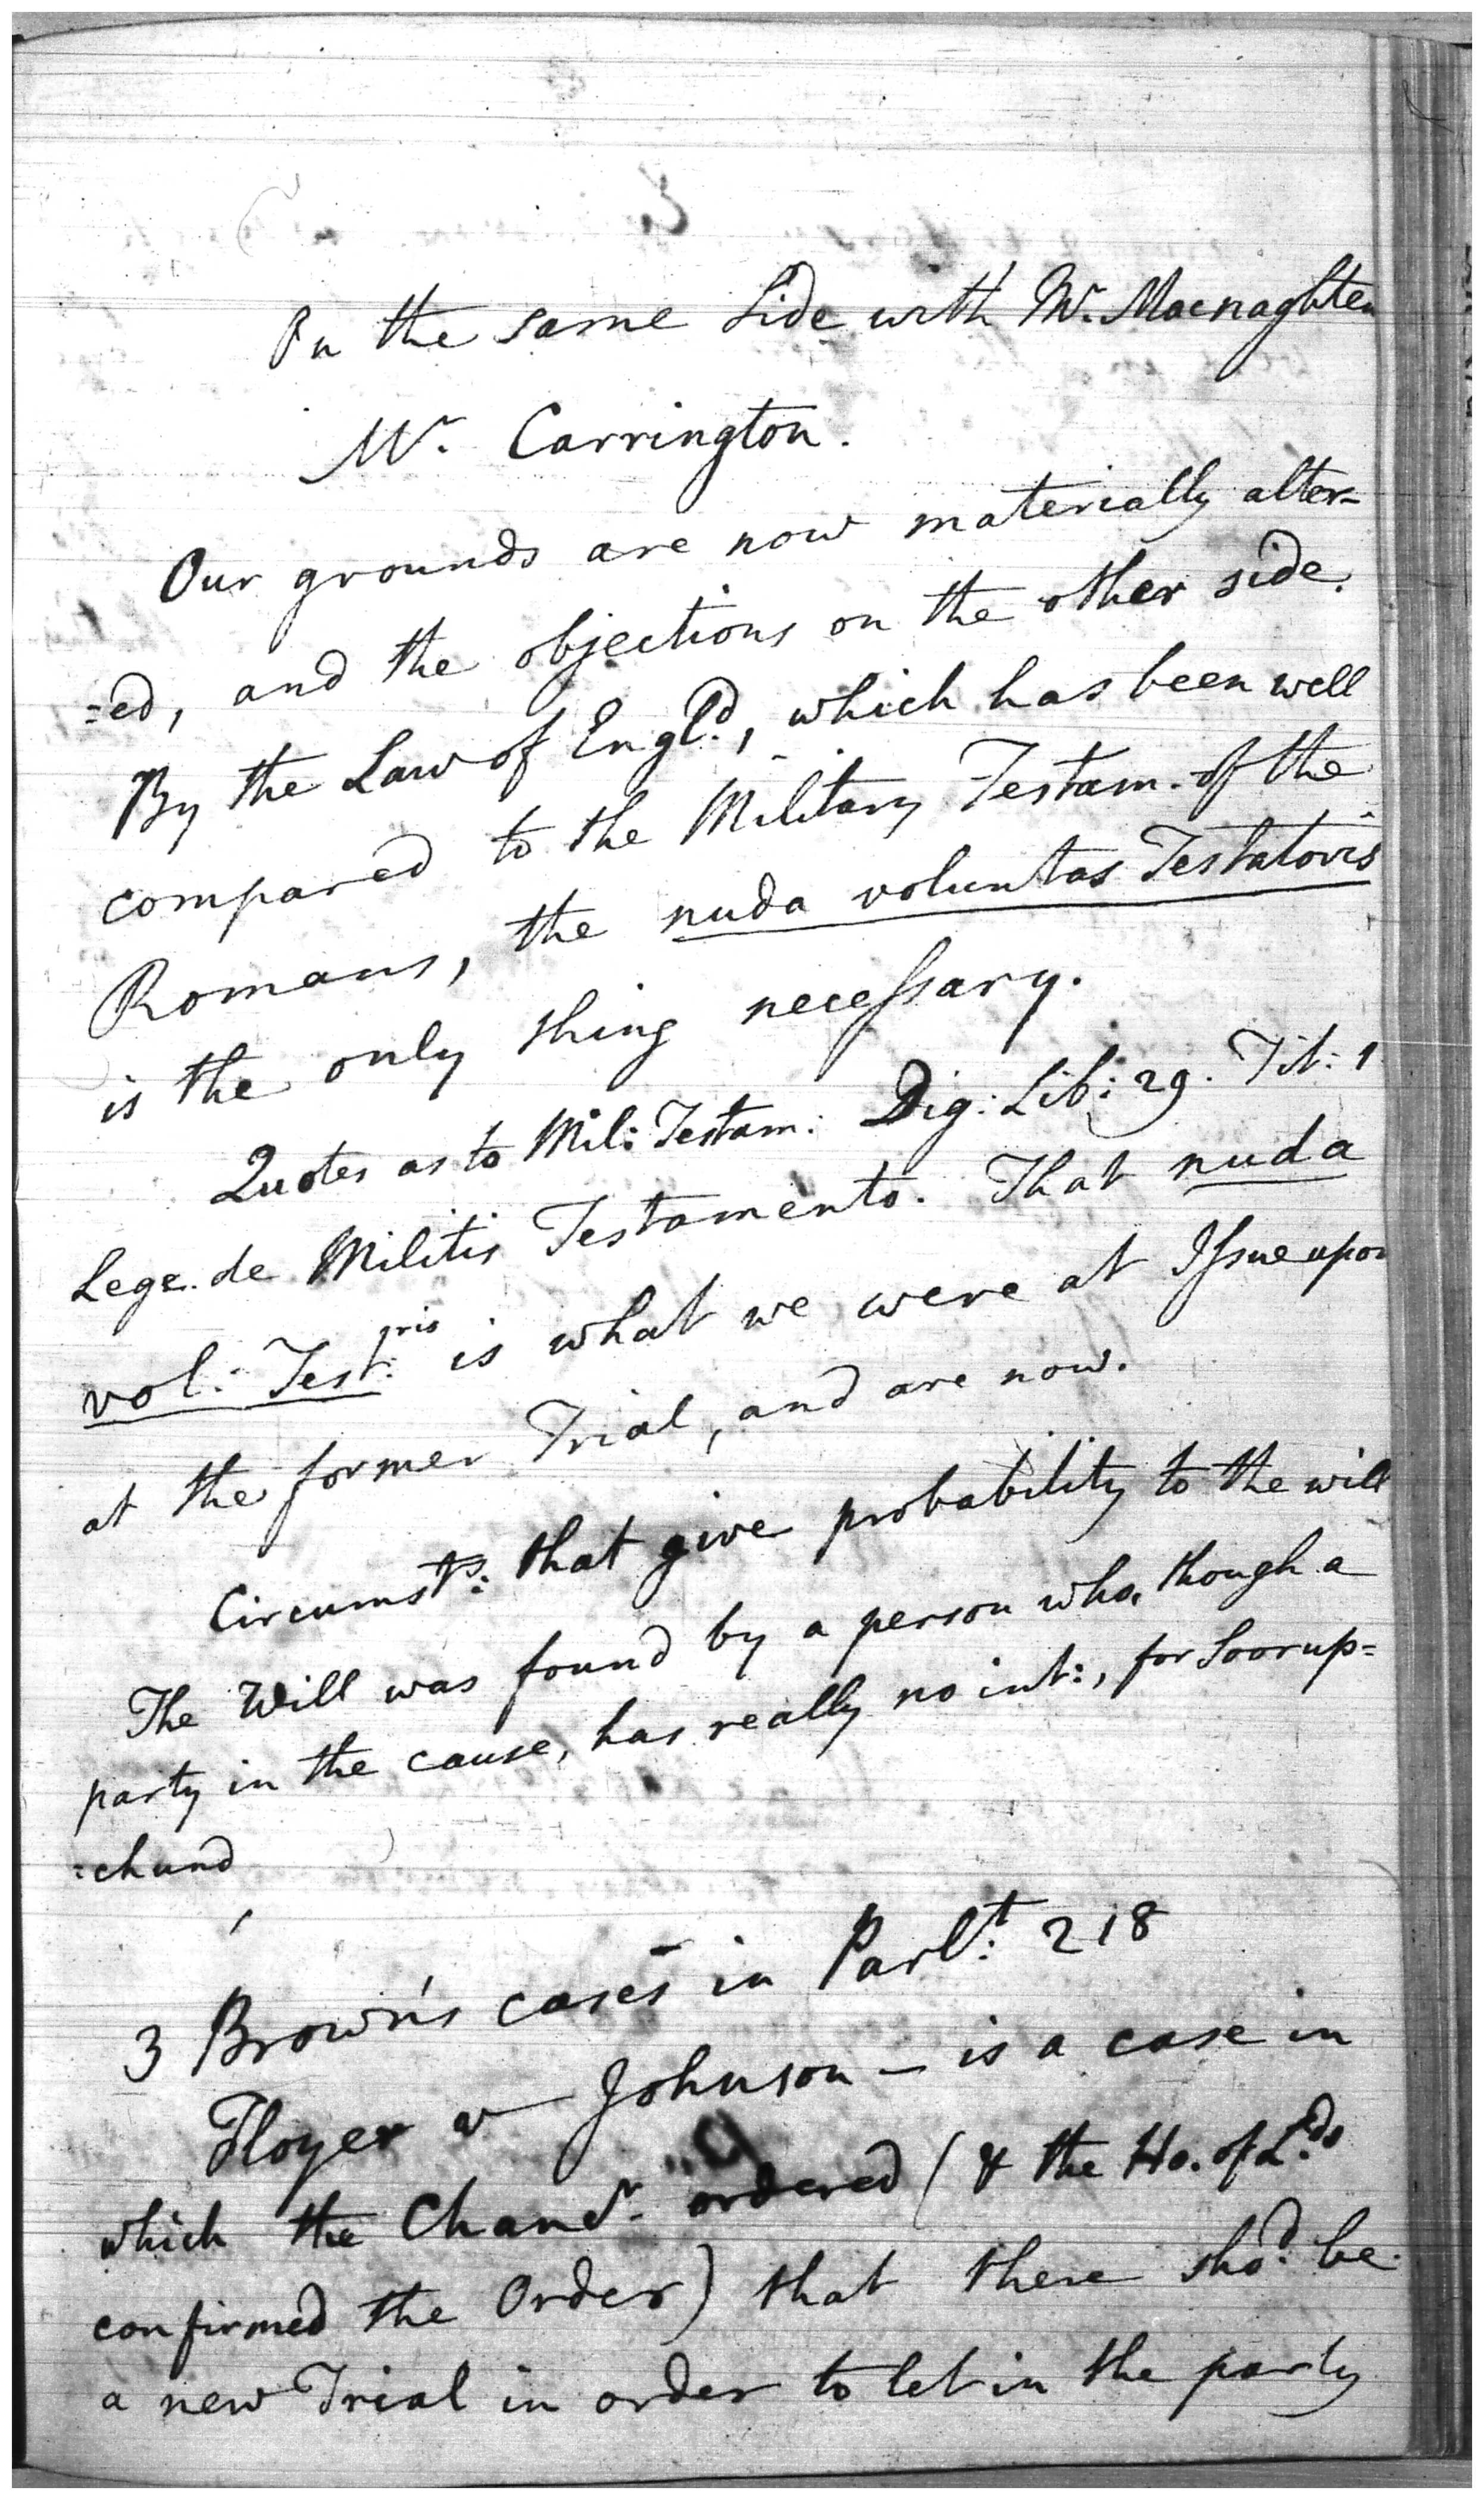 On the same side with Mr. Macnaghten
Mr. Carrington.
Our grounds are now materially alter=
=ed, and the objections on the other side.
By the Law of Engld., which has been well
compared to the Military Testam. of the
Romans, the nuda voluntas Testatoris
is the only thing necessary.
Quotes as to Mil: Testam: Dig: Lib: 29. Tit: 1
Lege. de Militis Testamento. That nuda
vol: Test:pris is what we were at Issue upon
at the former Trial, and are now.
Circumsts: that give probability to the will
The Will was found by a person who, though a
party in the cause, has really no int:, for Soorup=
=chund
3 Brown's cases in Parlt: 218
Floyer v Johnson – is a case in
which the Chanr. ordered (& the Ho. of Lds
confirmed the Order) that there shod. be
a new Trial in order to let in the party